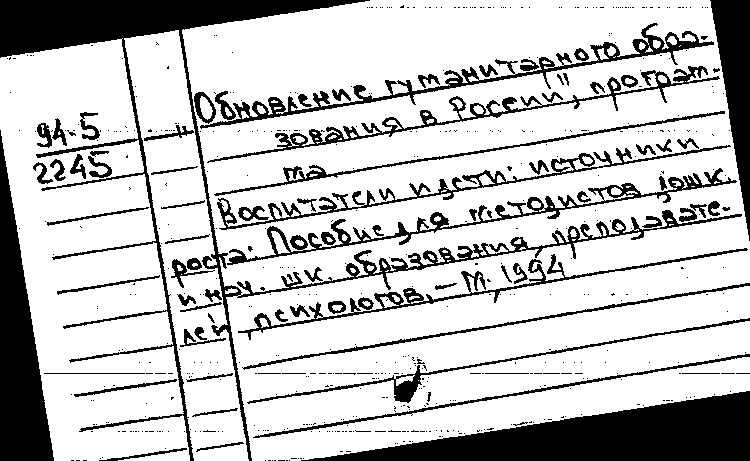 94-5
2245
"Обновление гуманитарного обра-
зования в России", програм-
ма.
Воспитатели и дети: источники
роста: Пособие для методистов дошк.
и нач. шк. образования, преподавате-
лей, психологов. - М., 1994